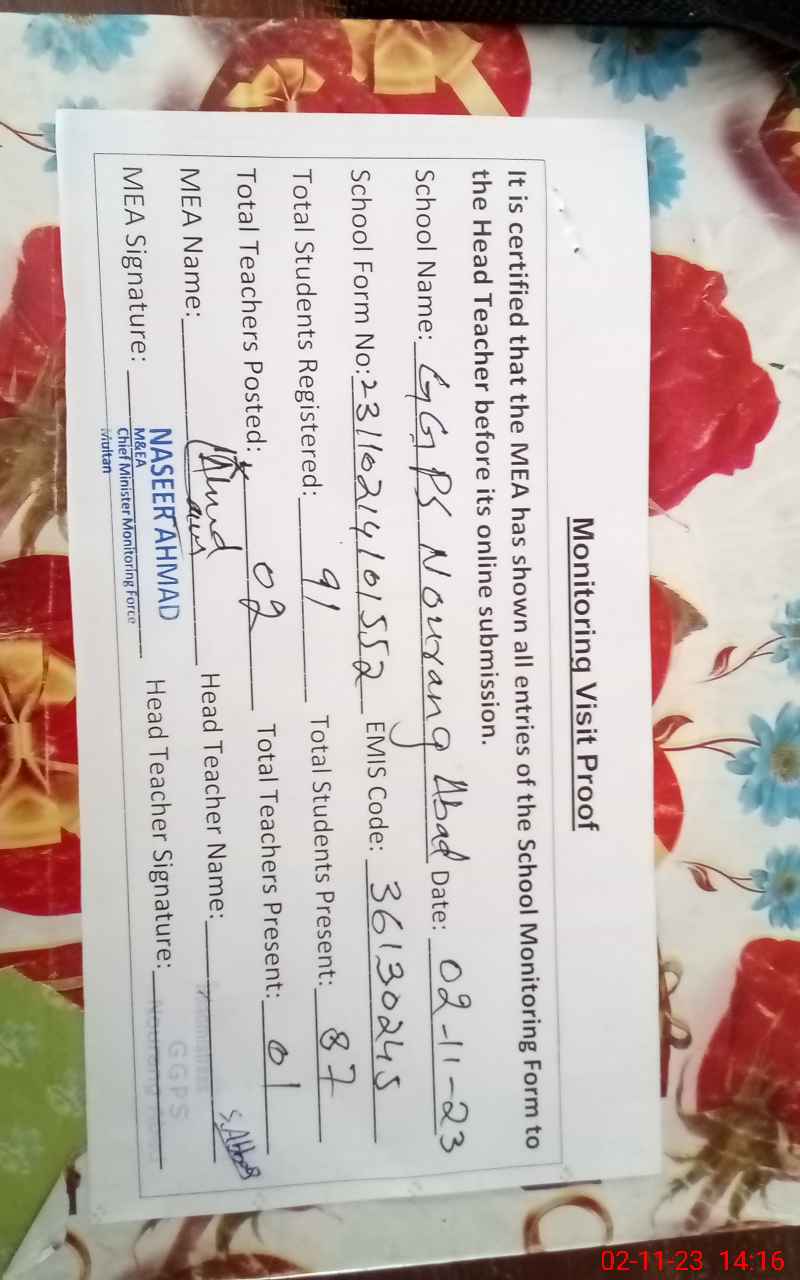 Monitoring Visit Proof
It is certified that the MEA has shown all entries of the School Monitoring Form to
the Head Teacher before its online submission.
School Name: GGPS Nourang Abad Date: 02-11-23
School Form No: 23110214101552 EMIS Code: 36130245
Total Students Registered: 91 Total Students Present: 87
Total Teachers Posted: 02 Total Teachers Present: 01
MEA Name: Head Teacher Name:
MEA Signature: Head Teacher Signature:
NASEER AHMAD
M&EA
Chief Minister Monitoring Force
Multan
GGPS
02-11-23 14:16